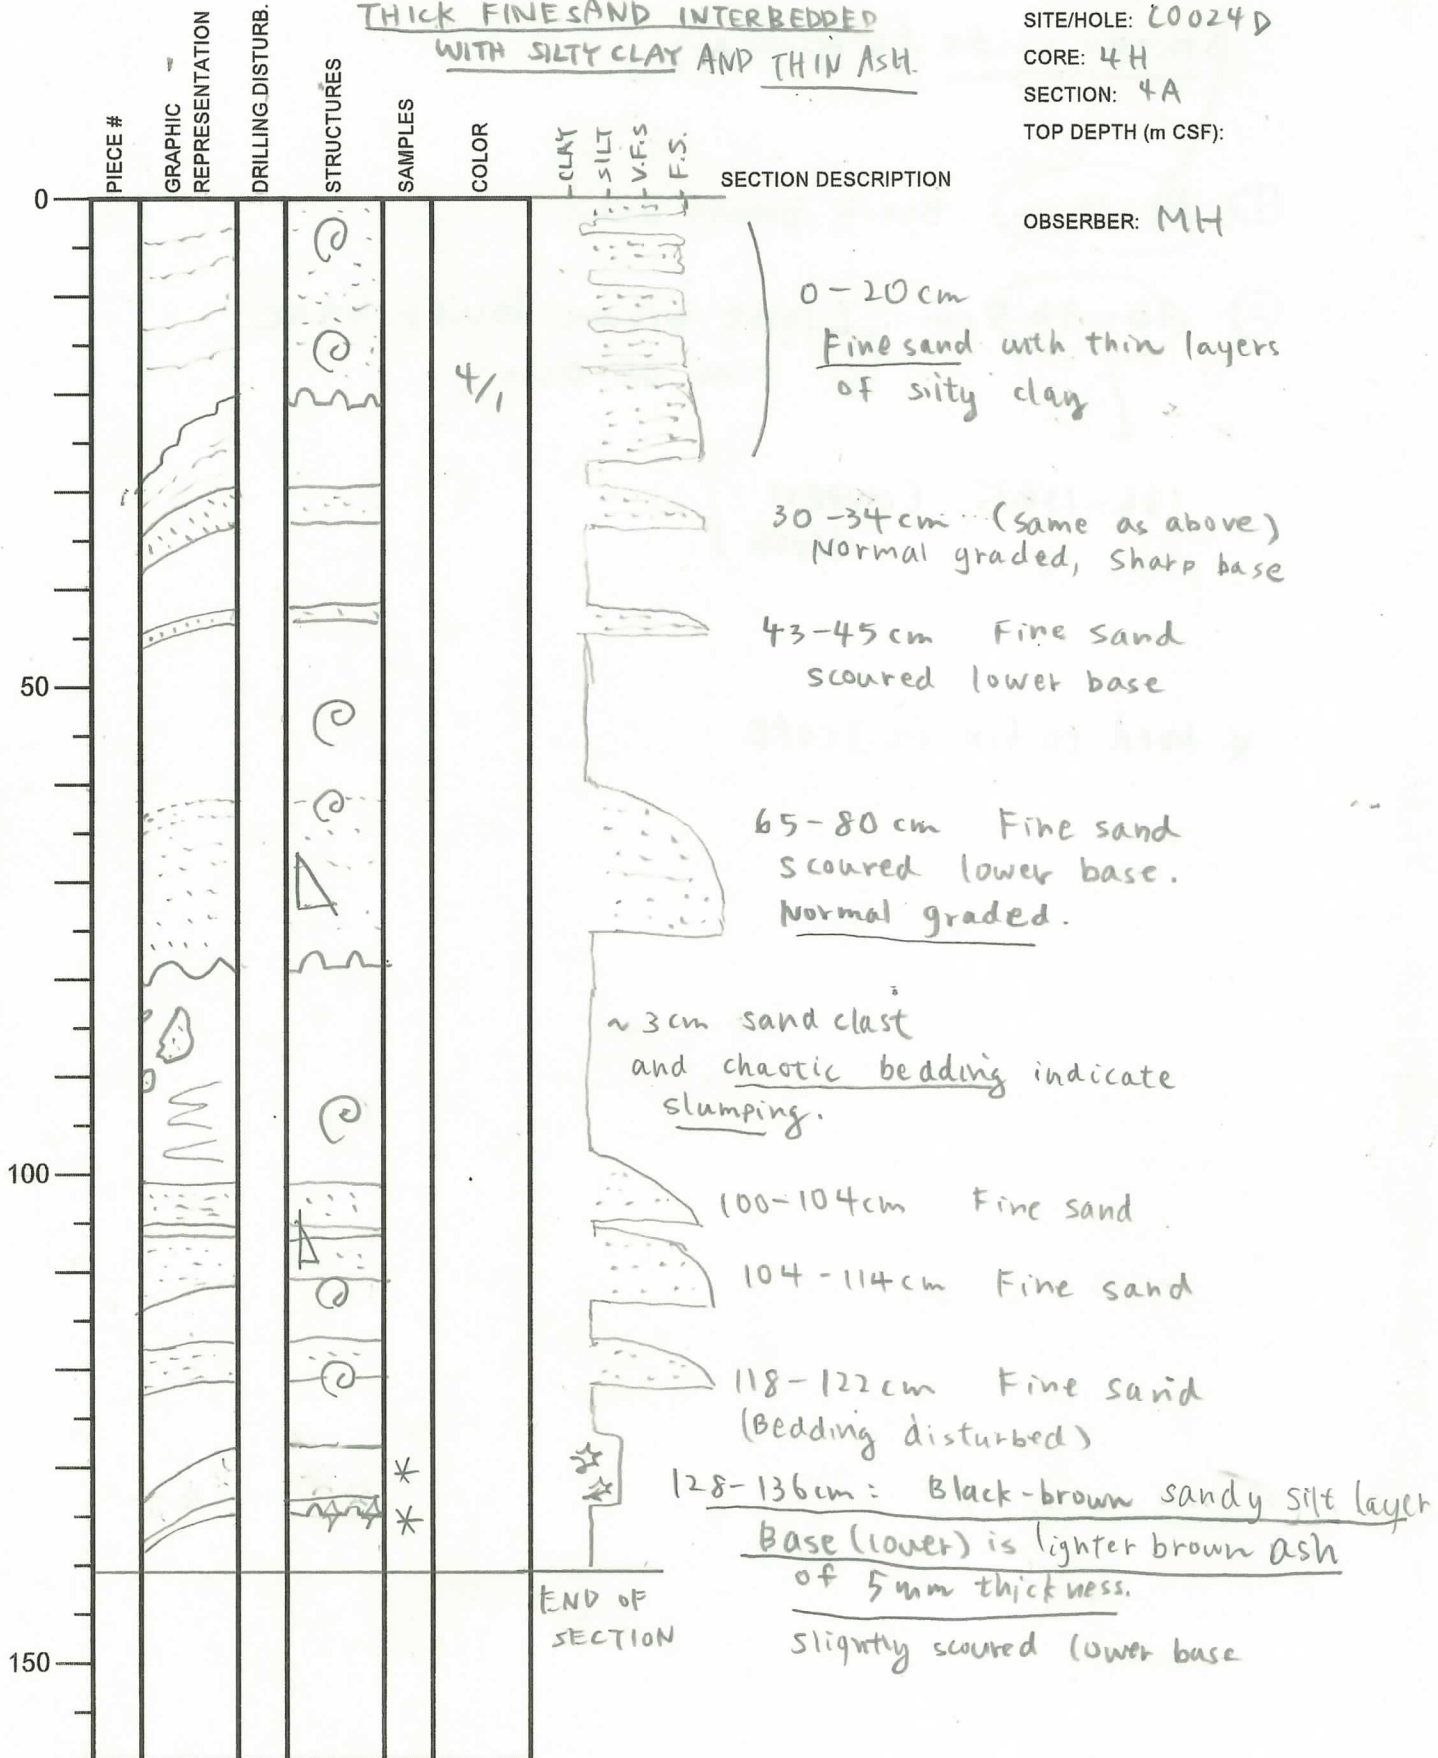 THICK FINE SAND INTERBEDDED
WITH SILTY CLAY AND THIN ASH.
SITE/HOLE: C0024D
CORE: 4H
SECTION: 4A
TOP DEPTH (m CSF):
OBSERBER: MH
PIECE #
GRAPHIC
REPRESENTATION
DRILLING DISTURB.
STRUCTURES
SAMPLES
COLOR
CLAY
SILT
V.F.S
F.S.
SECTION DESCRIPTION
0
0-20 cm
Fine sand with thin layers
of silty clay
4/1
30-34 cm (same as above)
Normal graded, Sharp base
43-45 cm Fine sand
scoured lower base
50
65-80 cm Fine sand
scoured lower base.
Normal graded.
~3cm sand clast
and chaotic bedding indicate
slumping.
100
100-104cm Fine sand
104-114cm Fine sand
118-122cm Fine sand
(Bedding disturbed)
128-136cm: Black-brown sandy silt layer
Base (lower) is lighter brown ash
of 5mm thickness.
slightly scoured lower base
END OF
SECTION
150